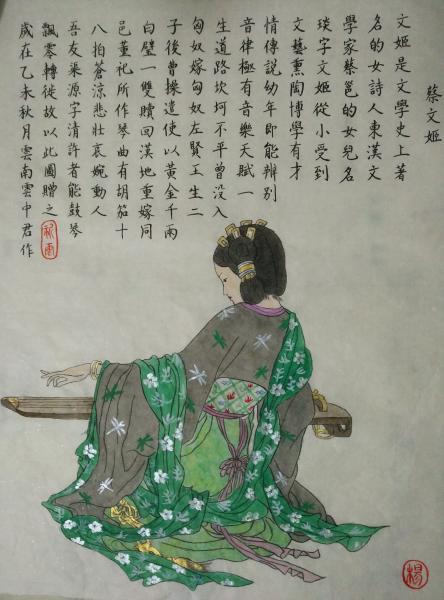 蔡文姬
文姬是文學史上著
名的女詩人東漢文
學家蔡邕的女兒名
琰字文姬從小受到
文藝熏陶博學有才
情傳說幼年即能辨別
音律極有音樂天賦一
生道路坎坷不平曾沒入
匈奴嫁匈奴左賢王生二
子後曹操遣使以黃金千兩
白璧一雙贖回漢地重嫁同
邑董祀所作琴曲有胡笳十
八拍蒼涼悲壯哀婉動人
吾友渠源字清許者能鼓琴
飄零轉徙故以此圖贈之
歲在乙未秋月雲南雲中君作
楊